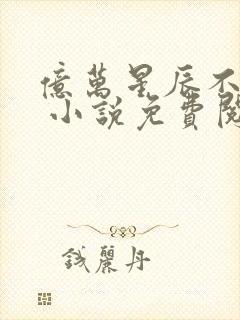 億萬星辰不
小說免費閱
錢麗丹